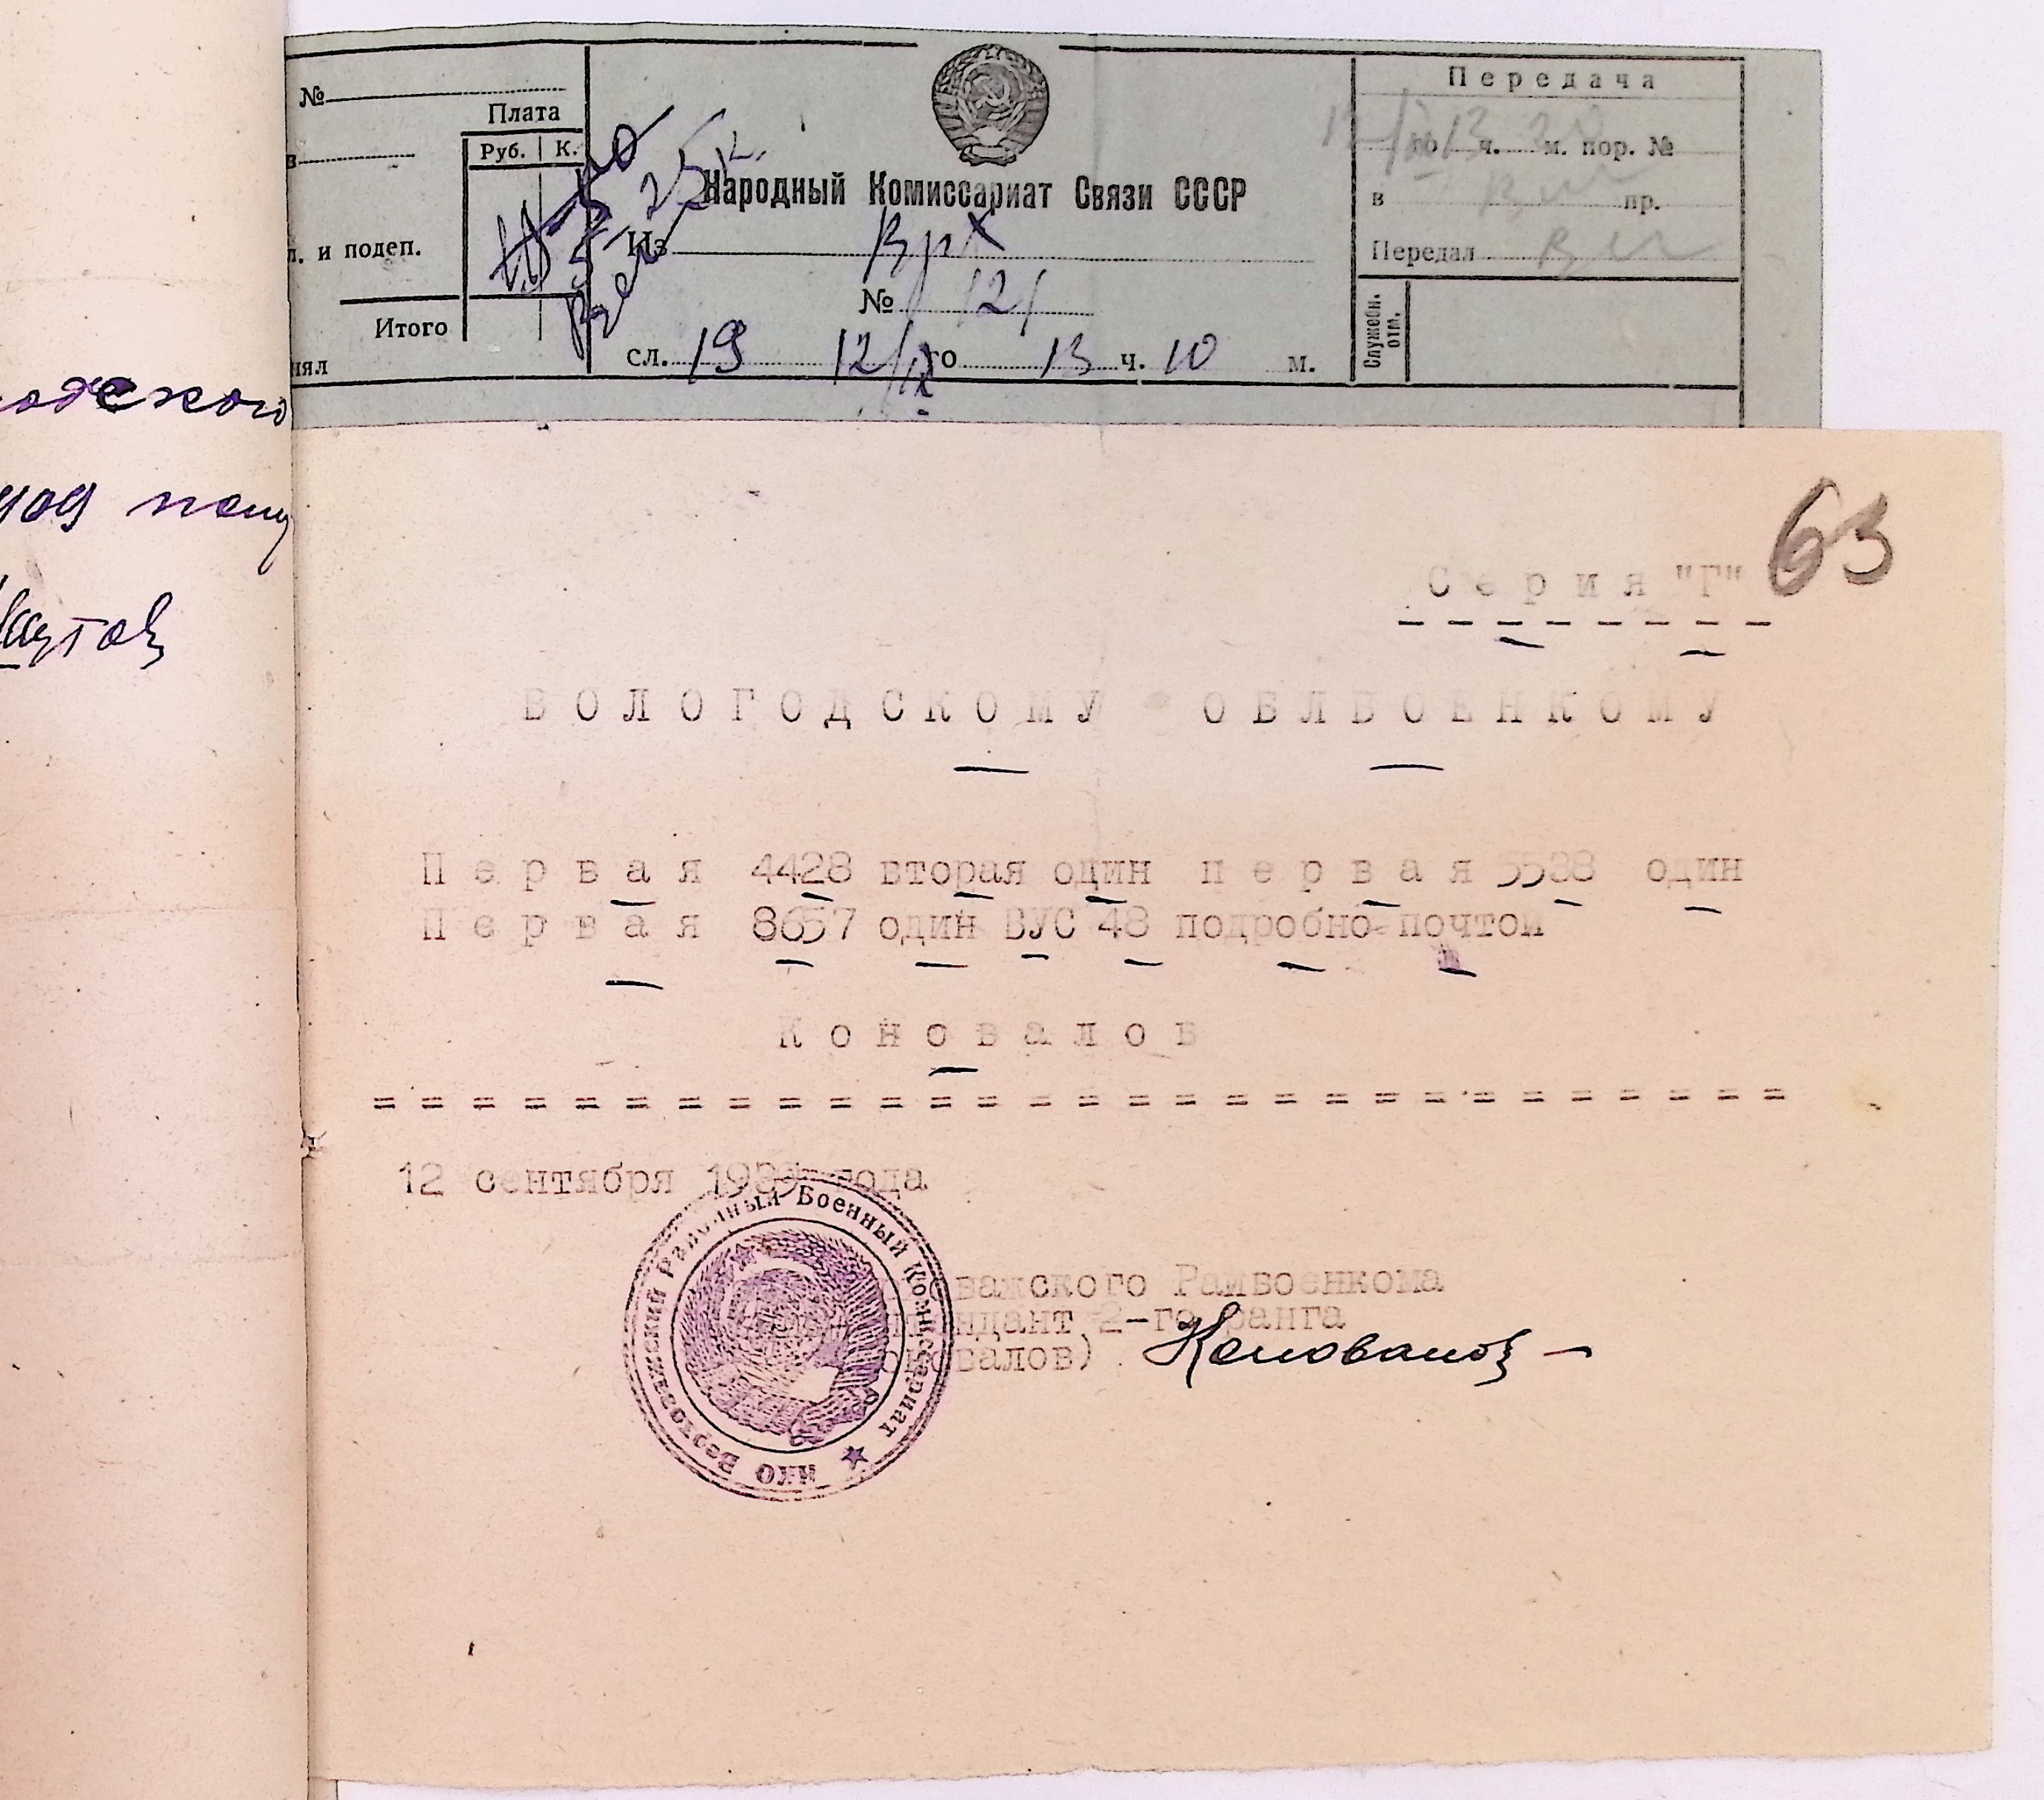 №
Плата
Руб. К.
л. и подеп.
Итого
Народный Комиссариат Связи СССР
Из Врх
№ 121
сл. 19 12/IX го 13 ч. 10 м.
Передача
12/IX го 13 ч. 20 м. пор. №
в пр.
Передал
Служебн.
отм.
63
Серия "Г"
ВОЛОГОДСКОМУ ОБЛВОЕНКОМУ
Первая 4428 вторая один первая 5538 один
Первая 8657 один ВУС 48 подробно почтой
Коновалов
12 сентября 193 года
важского Райвоенкома
ндант 2-го ранга
оновалов) Коновалов
НКО Верховажский Районный Военный Комиссариат